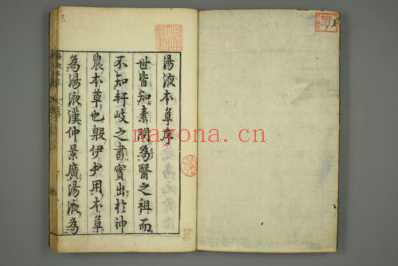 湯液本草序
世皆知素問爲醫之祖而
不知軒岐之書實出於神
農本草也殷伊尹用本草
為湯液漢仲景廣湯液為
nayona.cn